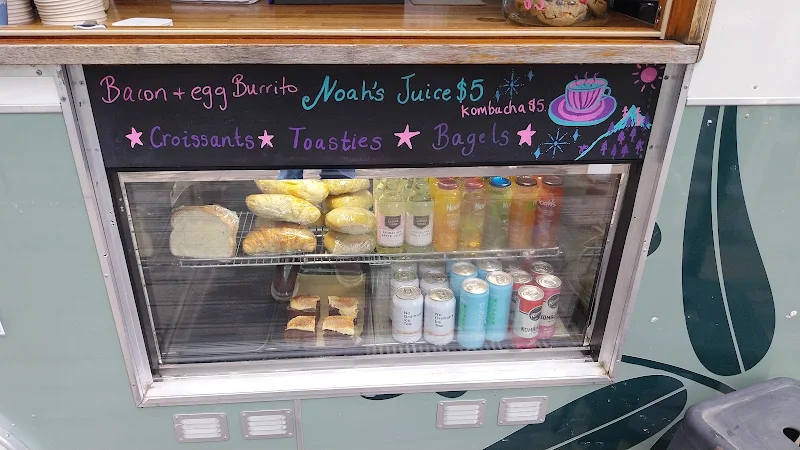 Bacon + egg Burrito Noah's Juice $5
Kombucha $5
Croissants Toasties Bagels